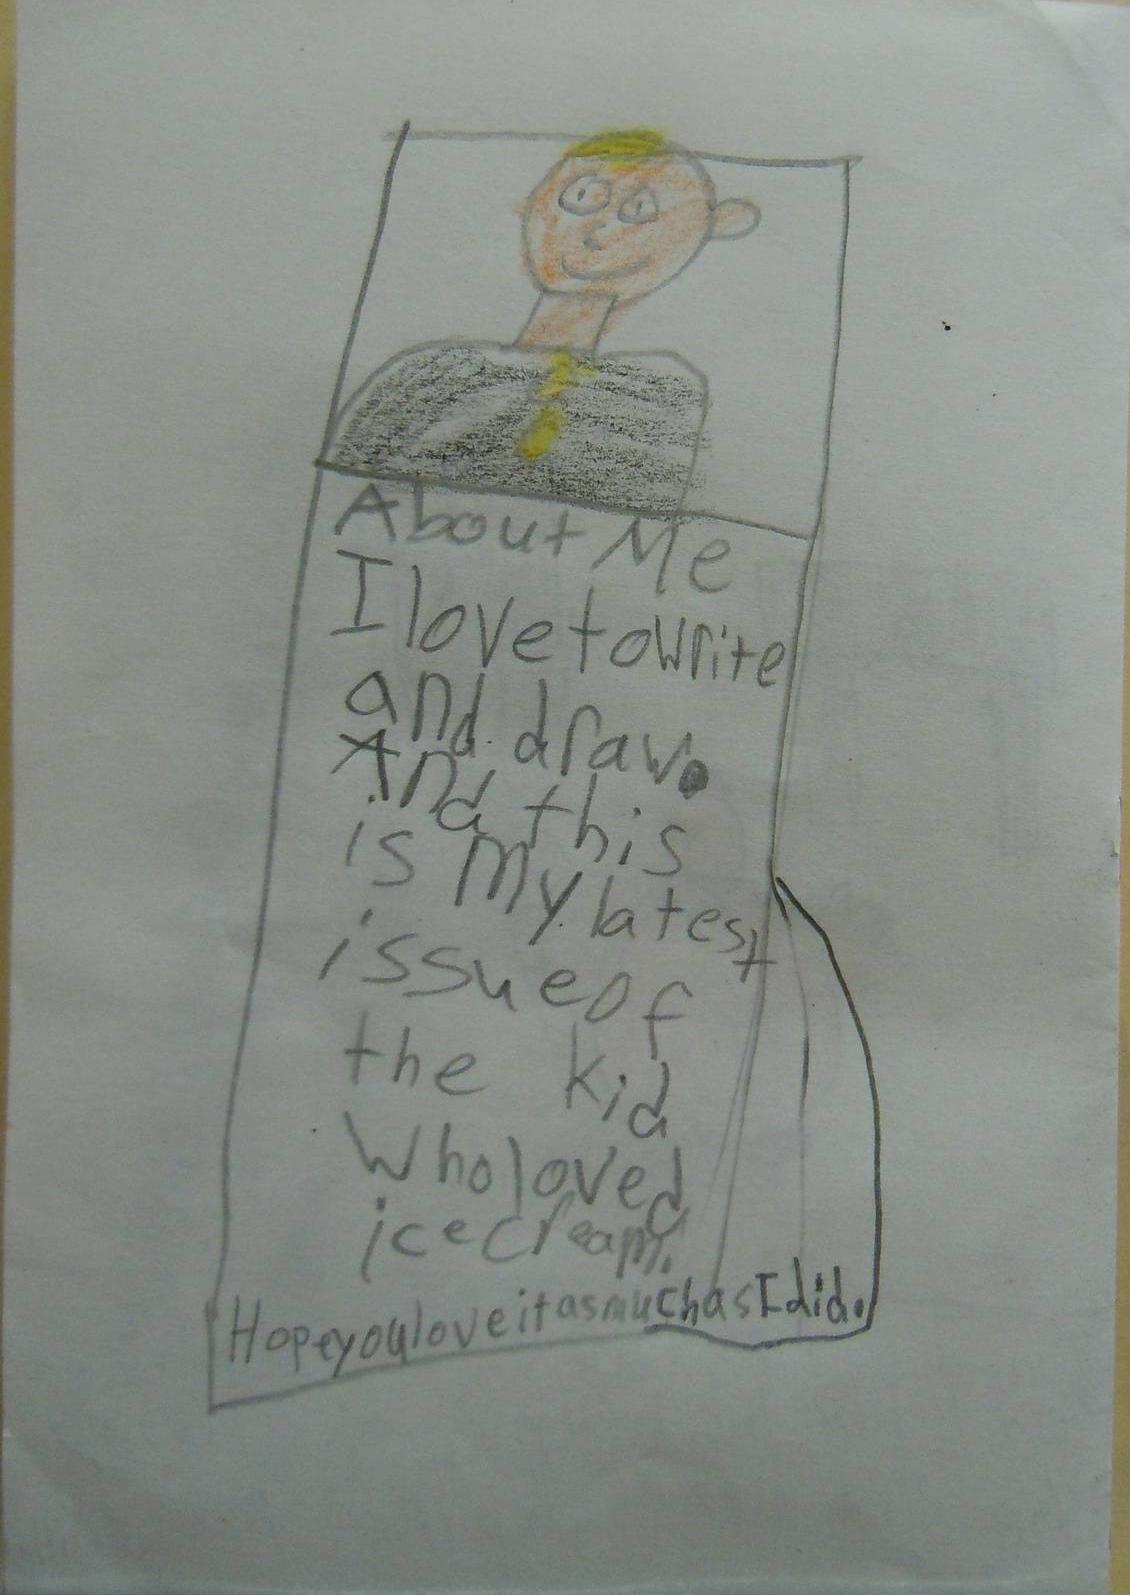 About Me
I love to write
and draw.
And this
is my latest
issue of
the kid
who loved
icecream.
Hope you love it as much as I did.